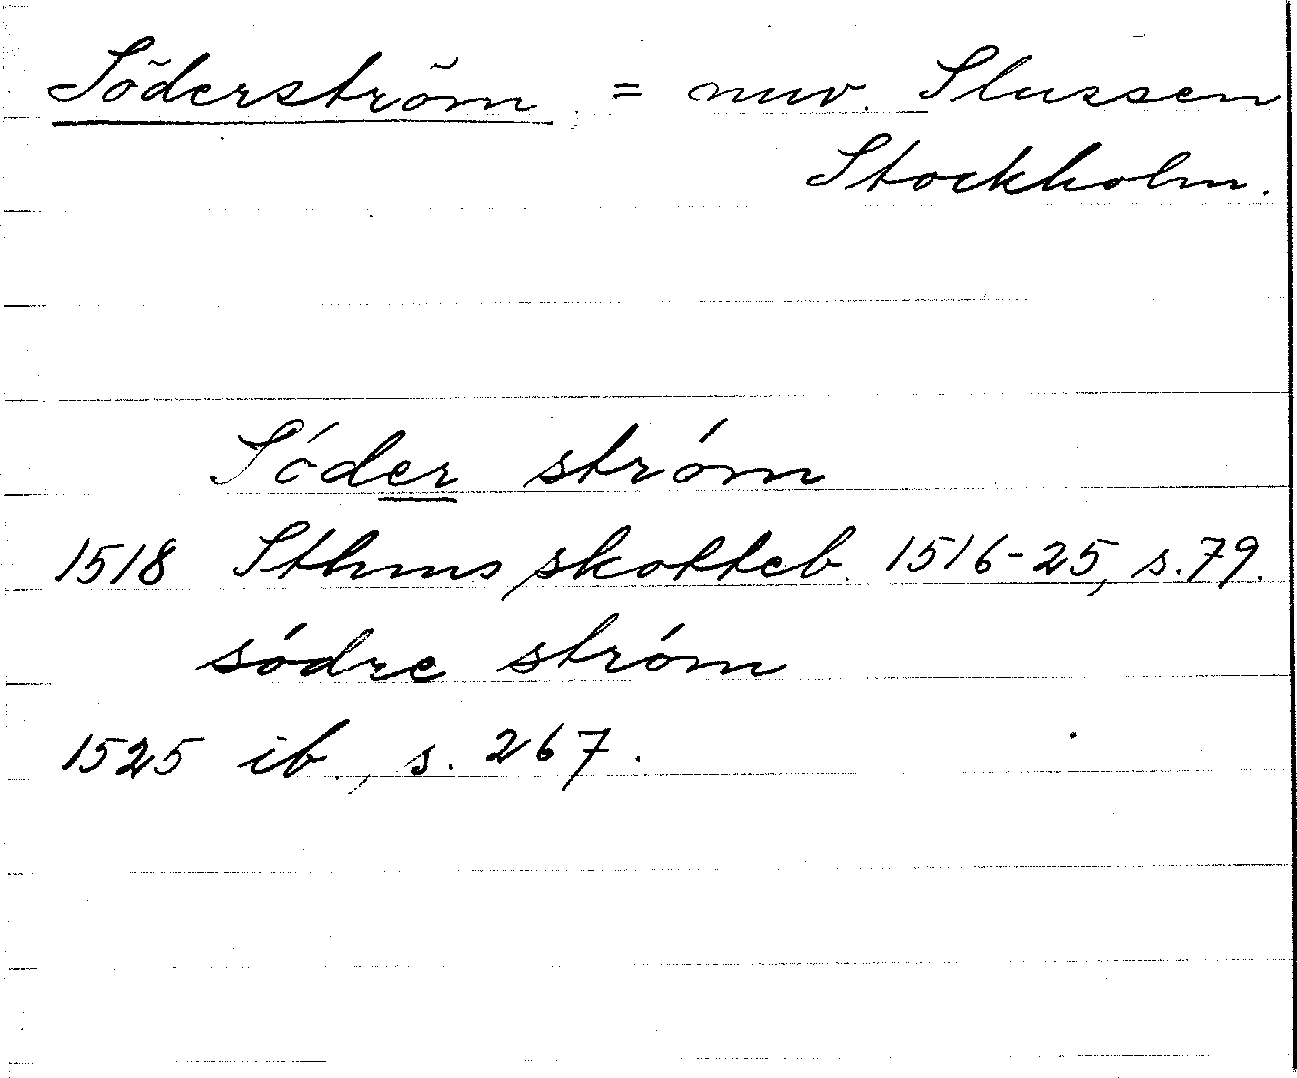 Söderström = nuv. Slussen
Stockholm.
Sóder stróm
1518 Sthms skotteb. 1516-25, s. 79.
södre stróm
1525 ib., s. 267.